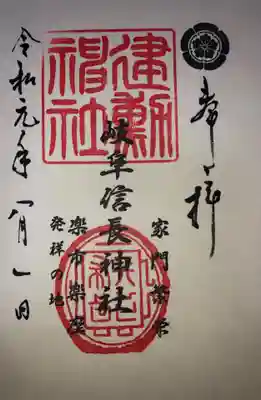 奉拝
建勲神社
家門繁栄
岐阜信長神社
楽市楽座
発祥の地
令和元年八月一日